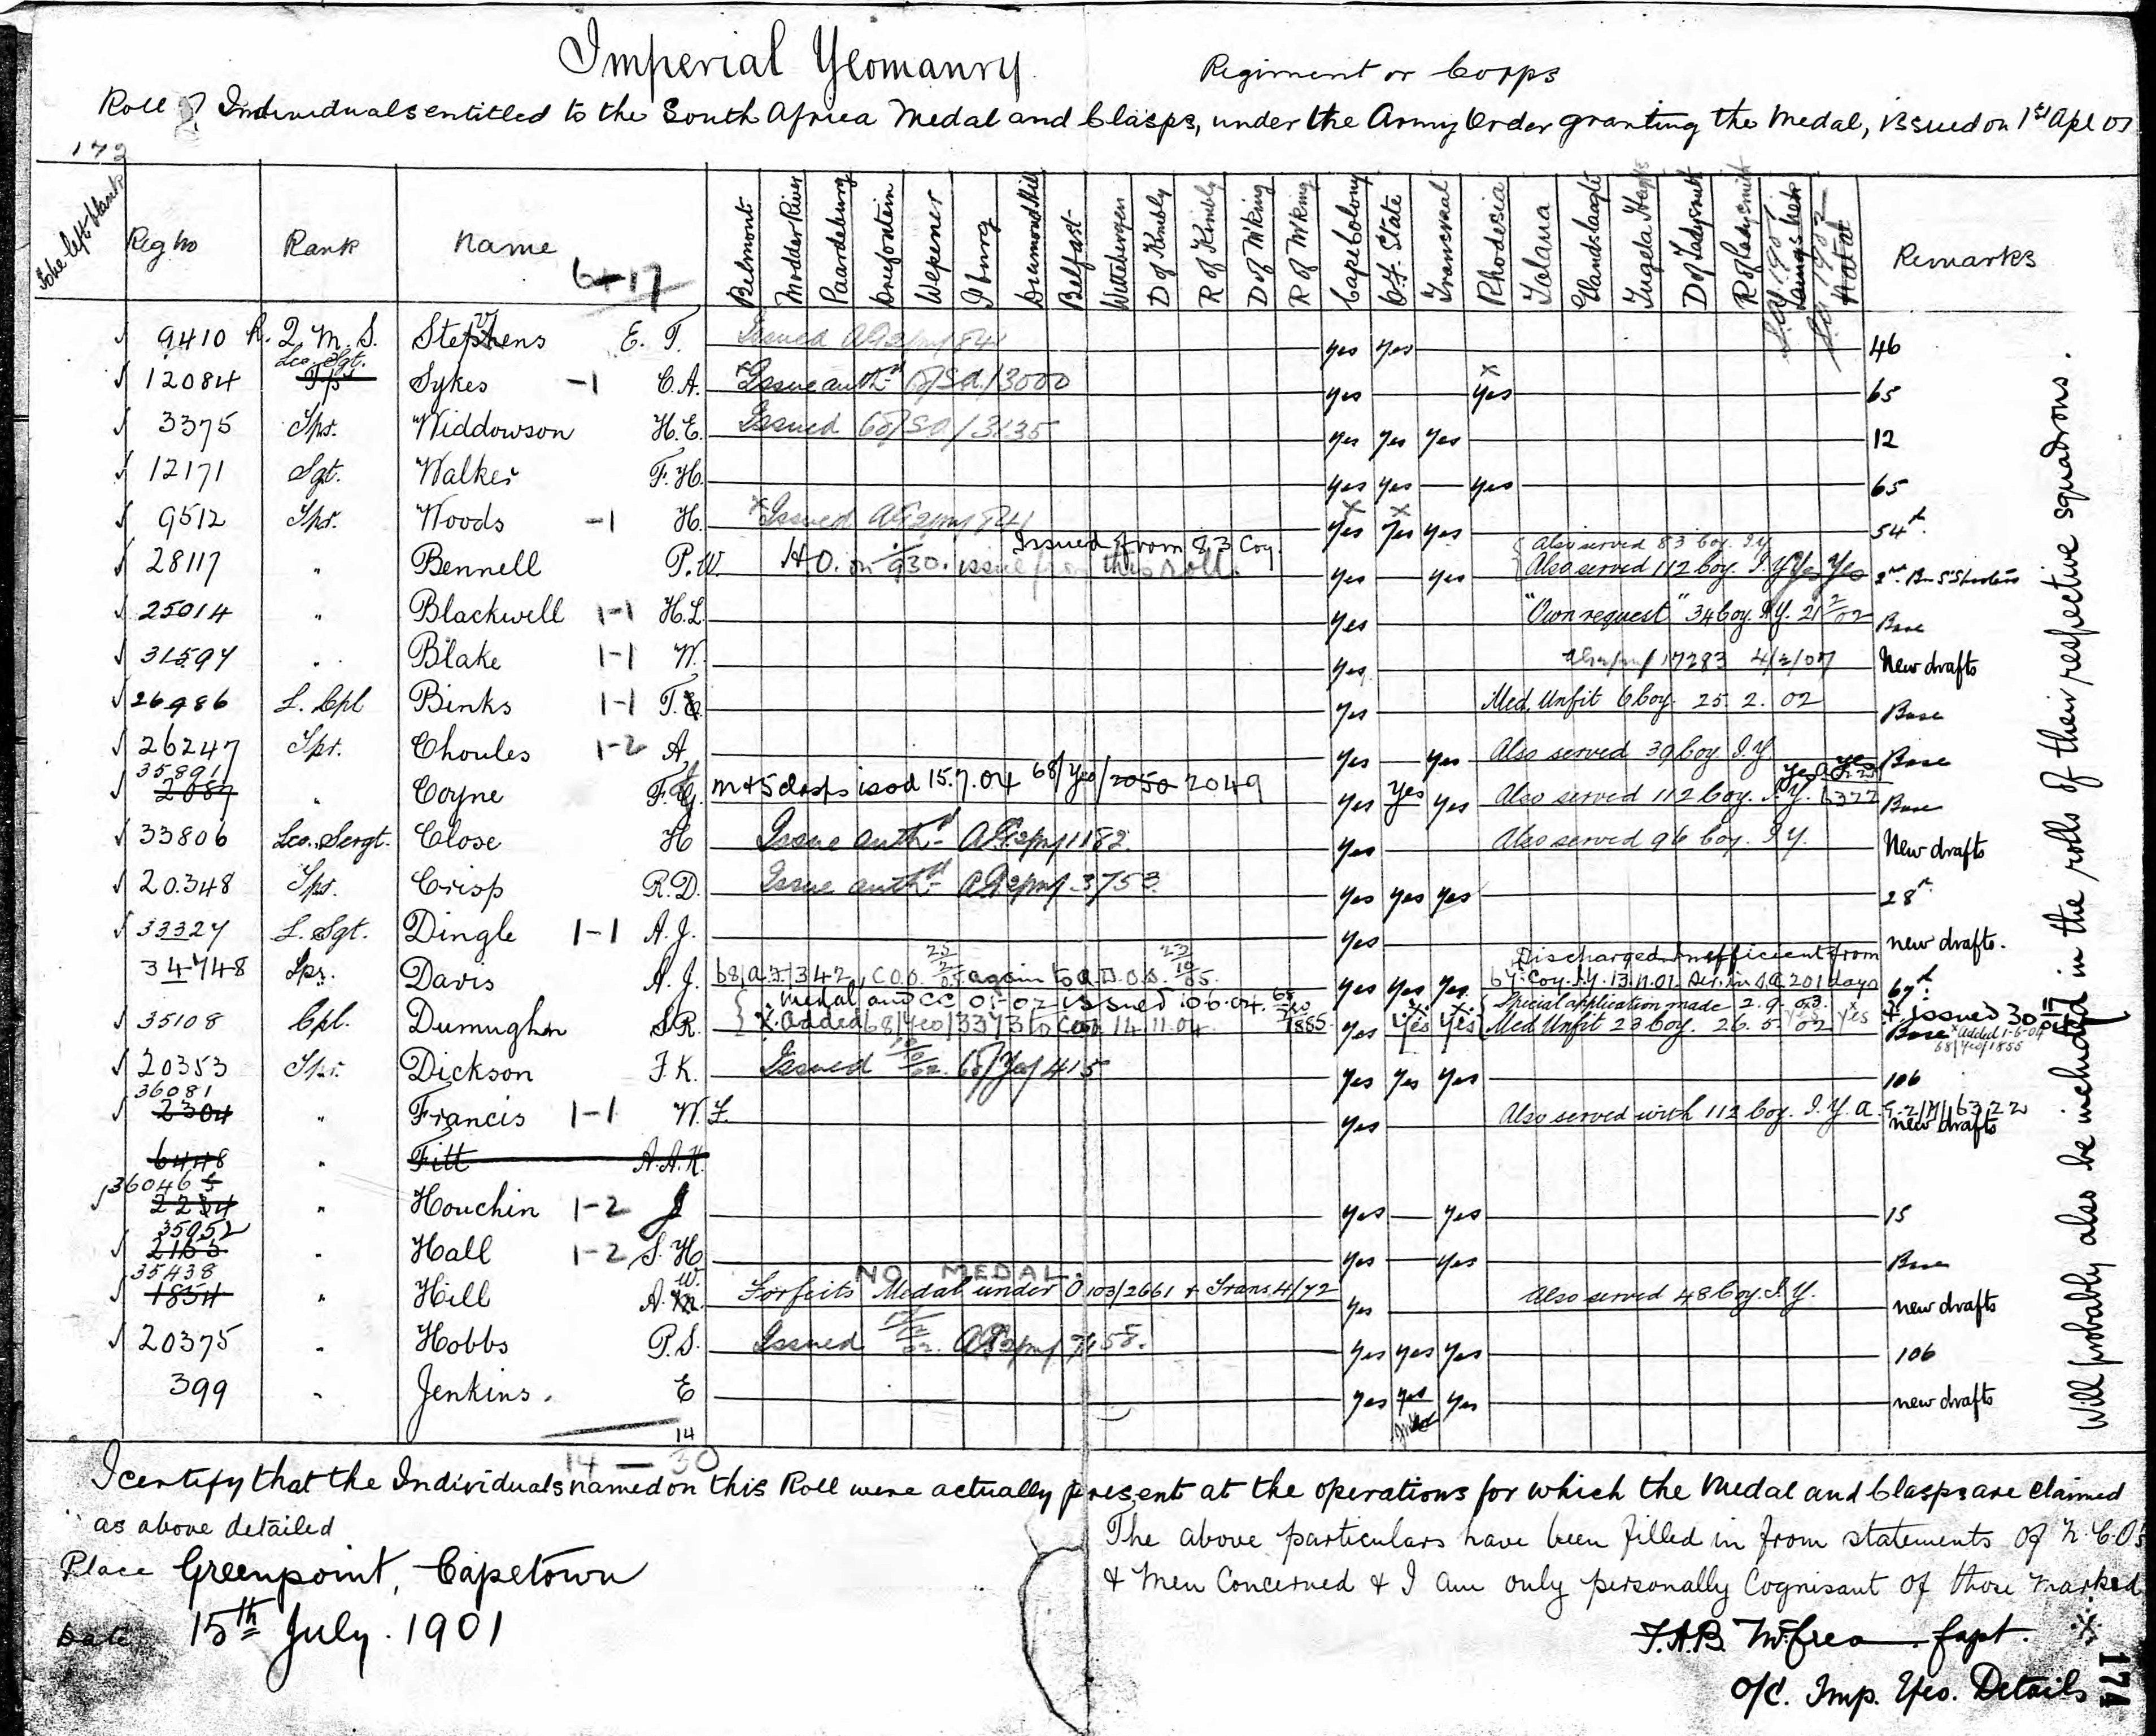 Imperial Yeomanry Regiment or Corps
Roll of Individuals entitled to the South Africa Medal and Clasps, under the Army Order granting the Medal, issued on 1st Apl 01
Reg No Rank Name Belmont Modder River Paardeburg Driefontein Wepener J'burg Diamond Hill Belfast Wittebergen D of Kimbly R of Kimbly D of M'King R of M'King Cape Colony O.F. State Transvaal Rhodesia Talana Elandslaagte Tugela Heights D of Ladysmith R of Ladysmith Natal Remarks
6+17
9410 R. Q. M. S. Stephens E. T. Issued yes yes 46
12084 Sykes -1 C.A. Issue authd 68/S.A./3000 yes yes 65
3375 Tpr. Widdowson H.E. Issued 68/SA/3135 yes yes yes 12
12171 Sgt. Walker F.H. yes yes yes 65
9512 Tpr. Woods -1 H. Issued yes yes yes 54th
Issued from 83 Coy. Also served 83 Coy. I.Y.
28117 " Bennell P.W. issue from this roll. yes yes Also served 112 Coy. I.Y. yes yes
25014 " Blackwell 1-1 H.L. yes "Own request" 34 Coy. I.Y. 21/2/02 Base
31597 " Blake 1-1 W. yes 17283 4/2/07 New drafts
26986 L. Cpl Binks 1-1 T. yes Med. Unfit 6 Coy. 25. 2. 02 Base
26247 Tpr. Choules 1-2 A. yes yes Also served 39 Coy. I.Y. Base
35891
2087 " Coyne F. G. M+5 clasps issd 15.7.04 68/Yeo/2050 2049 yes yes yes Also served 112 Coy. I.Y. 6322 Base
33806 Sergt. Close H Issue authd 1182 yes Also served 96 Coy. I.Y. New drafts
20348 Tpr. Crisp R.D. Issue authd 3753 yes yes yes 28th
33327 L. Sgt. Dingle 1-1 A.J. yes new drafts.
Discharged Inefficient from
34748 Tpr. Davis A.J. again to A.D.O.S. yes yes yes 67 Coy. I.Y. 13.11.01. Ser. in S.A. 201 days 67th
Medal and CC 01-02 issued 10.6.04. Special application made 2.9.03. issued 30
35108 Cpl. Dumughn S.R. Added 68/Yeo/3373 to CC 14.11.04 yes yes yes Med Unfit 23 Coy. 26. 5. 02 yes Base
added 1-6-04
68/Yeo/1855
20353 Tpr. Dickson F.K. Issued 68/Yeo/415 yes yes yes 106
36081
2304 " Francis 1-1 W.F. yes Also served with 112 Coy. I.Y. 6322 new drafts
6448 " Fitt A.A.K.
36046
2234 " Houchin 1-2 J yes yes 15
35952
2165 " Hall 1-2 S. H. yes yes Base
35438 NO MEDAL.
1854 " Hill A. W. Forfeits Medal under O 103/2661 + Trans 4/72 yes Also served 48 Coy. I.Y. new drafts
20375 " Hobbs P.S. Issued yes yes yes 106
399 " Jenkins. E yes yes yes new drafts
14
14 — 30
Will probably also be included in the rolls of their respective squadrons.
I certify that the Individuals named on this Roll were actually present at the operations for which the Medal and Clasps are claimed
as above detailed
The above particulars have been filled in from statements of N.C.O's
& men Concerned & I am only personally Cognisant of those marked
Place Greenpoint, Capetown
Date 15th July. 1901
Capt.
O/C. Imp. Yeo. Details
174